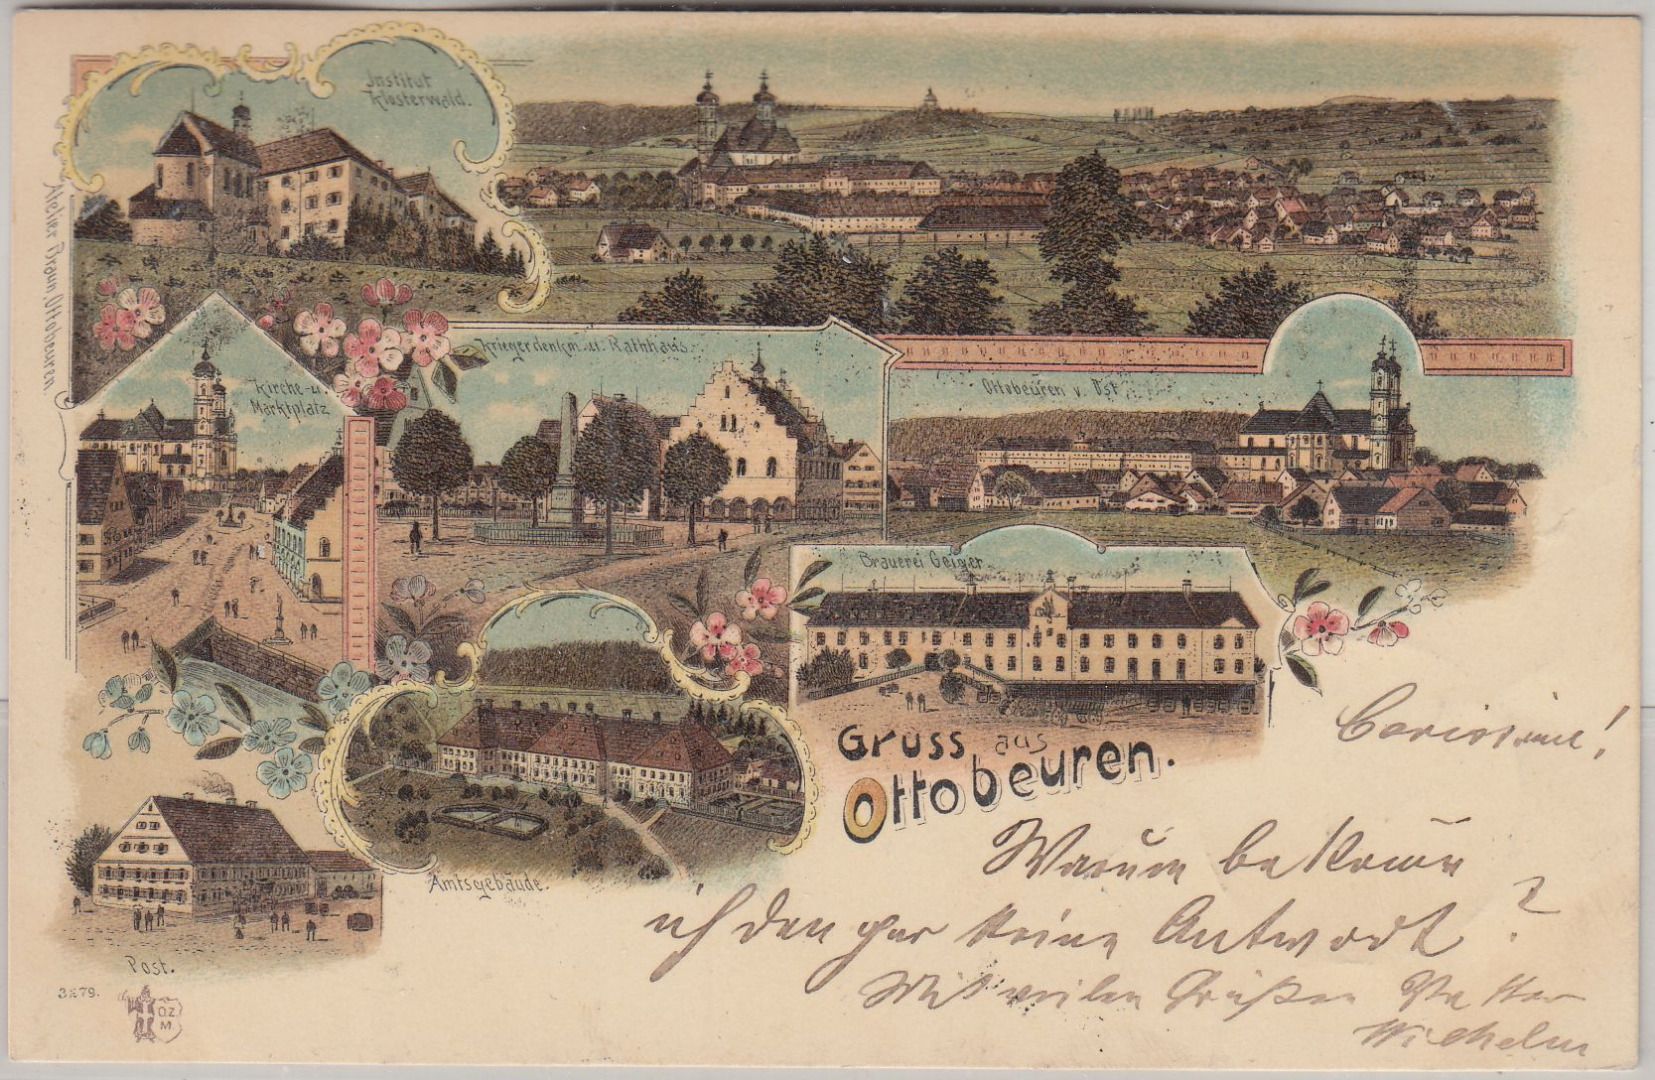 Institut
Klosterwald.
Atelier Braun, Ottobeuren
Kirche u.
Marktplatz
Kriegerdenkm. u. Rathhaus.
Ottobeuren v. Ost
Brauerei Geiger
Gruss aus
Ottobeuren.
Amtsgebäude.
Post.
3879.
O.Z.
M.
Warum bekomme
ich den gar keine Antwordt?
Mit vielen Grüßen Vetter
Wilhelm